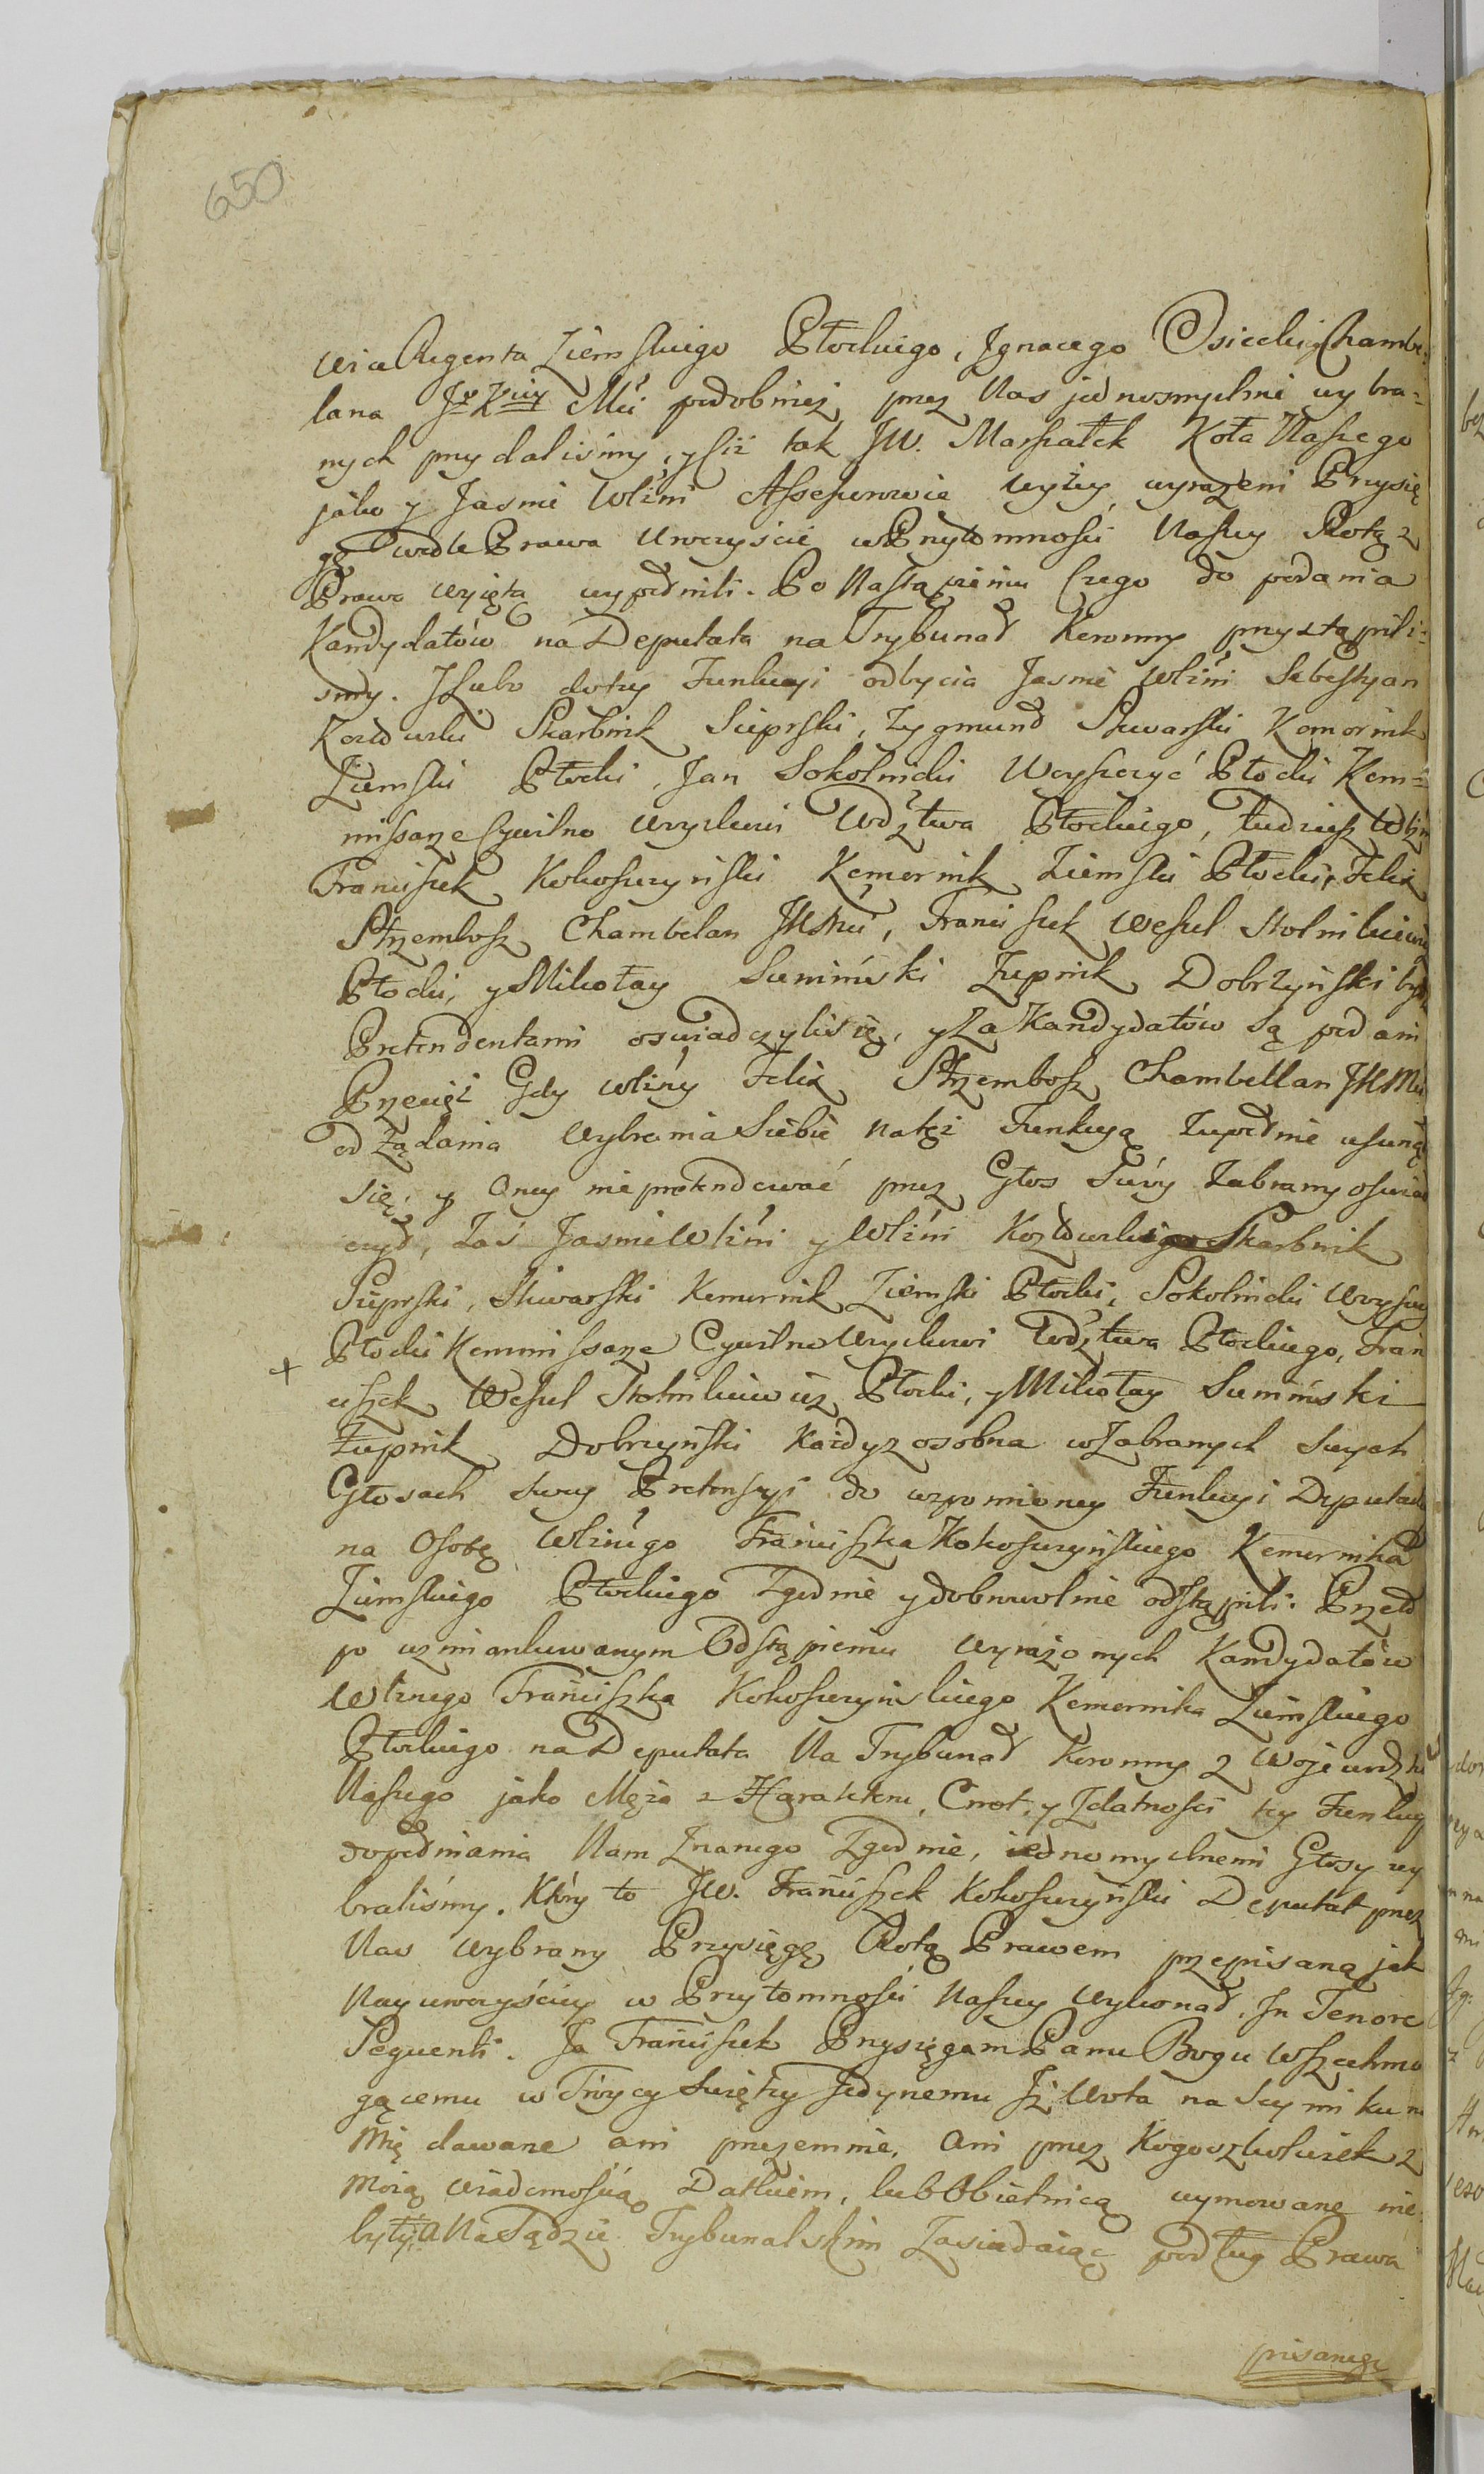 650
Vice Regenta Ziemskiego Płockiego, Jgnacego Osiecki Chambe-
lana JKM podobnież przez Nas jednomyslnie wybra=
nych przydalismy, y Ciż tak JW. Marszałek Koła Naszego
jako y Jasnie Wlźni Assessorowie wyżey wyrazeni Przysię
gę wedle Prawa Uroczyście w Przytomności Naszey Rotą z
Prawa wziętą wypełnili. Po Nastąpieniu Czego do podania
Kandydatów na Deputata na Trybunał Koronny przystąpili=
smy. JLubo do tey Funkcyi odbycia Jasnie Wlźni Sebestyan
Skarbnik Sieprski, Zygmund Skwarski Komornik
Ziemski Płocki, Jan Sokolnicki Wczyszczyć Płocki Kom=
missarze Cywilno Woyskowi Wdztwa Płockiego, tudziesz Wlźni
Franciszek Kokoszczyński Komornik Ziemski Płocki, Felix
Strzembosz Chambelan JKMci, Franciszek Wessel Stolnikiewicz
Płocki, y Mikołay Sumiński Żupnik Dobrzyński być
Pretendentami oswiadczyli się, y Za Kandydatów są podani
Przecięż Gdy Wlźny Felix Strzembosz Chambellan JKMci
od Żądania Wybrania Siebie na tęż Funkcyą Zupełnie usunął
się, y Oney niepretendować przez Głos Swóy Zabrany oswiad
czył, Zaś Jasnie Wlźni y Wlźni Skarbnik
Sieprski, Skwarski Komornik Ziemski Płocki, Sokolnicki
Płocki Kommissarze Cywilno Woyskowi Wdztwa Płockiego, Fran
+
ciszek Wessel Stolnikiewicz Płocki, y Mikołay Sumiński
Żupnik Dobrzyński Każdy z osobna w Zabranych Swych
Głosach swey Pretensyi do wzpomnioney Funkcyi Deputack
na Osobę Wlźnego Franciszka Kokoszczyńskiego Komornika
Ziemskiego Płockiego Zgodnie y dobrowolnie odstąpili. Przeto
po wzmiankowanym Odstąpieniu wyrażonych Kandydatów
Wlźnego Franciszka Kokoszczyńskiego Komornika Ziemskiego
Płockiego na Deputata Na Trybunał Koronny z Wojewodztw
Naszego jako Męża z Harakteru, Cnot, y Zdatności tey Funkcy
dopełniania Nam Znanego Zgodnie, jednomyslnemi Głosy wy
braliśmy. Który to JW. Franciszek Kokoszczyński Deputat przez
Nas wybrany Przysięgę Rotą Prawem przepisaną jak
Nayuroczyściey w Przytomności Naszey Wykonał, Jn Tenore
Sequenti. Ja Franciszek Przysięgam Panu Bogu Wszechmo
gącemu w Tróycy Swiętey Jedynemu Jż Wota na Seymiku na
Mię dawane ani przezemnie, ani przez Kogoszkolwiek z
Moią wiadomością Datkiem, lub Obietnicą uymowane nie
były, a Na Sądzie Trybunalskim Zasiadaiąc podług Prawa
pisanego